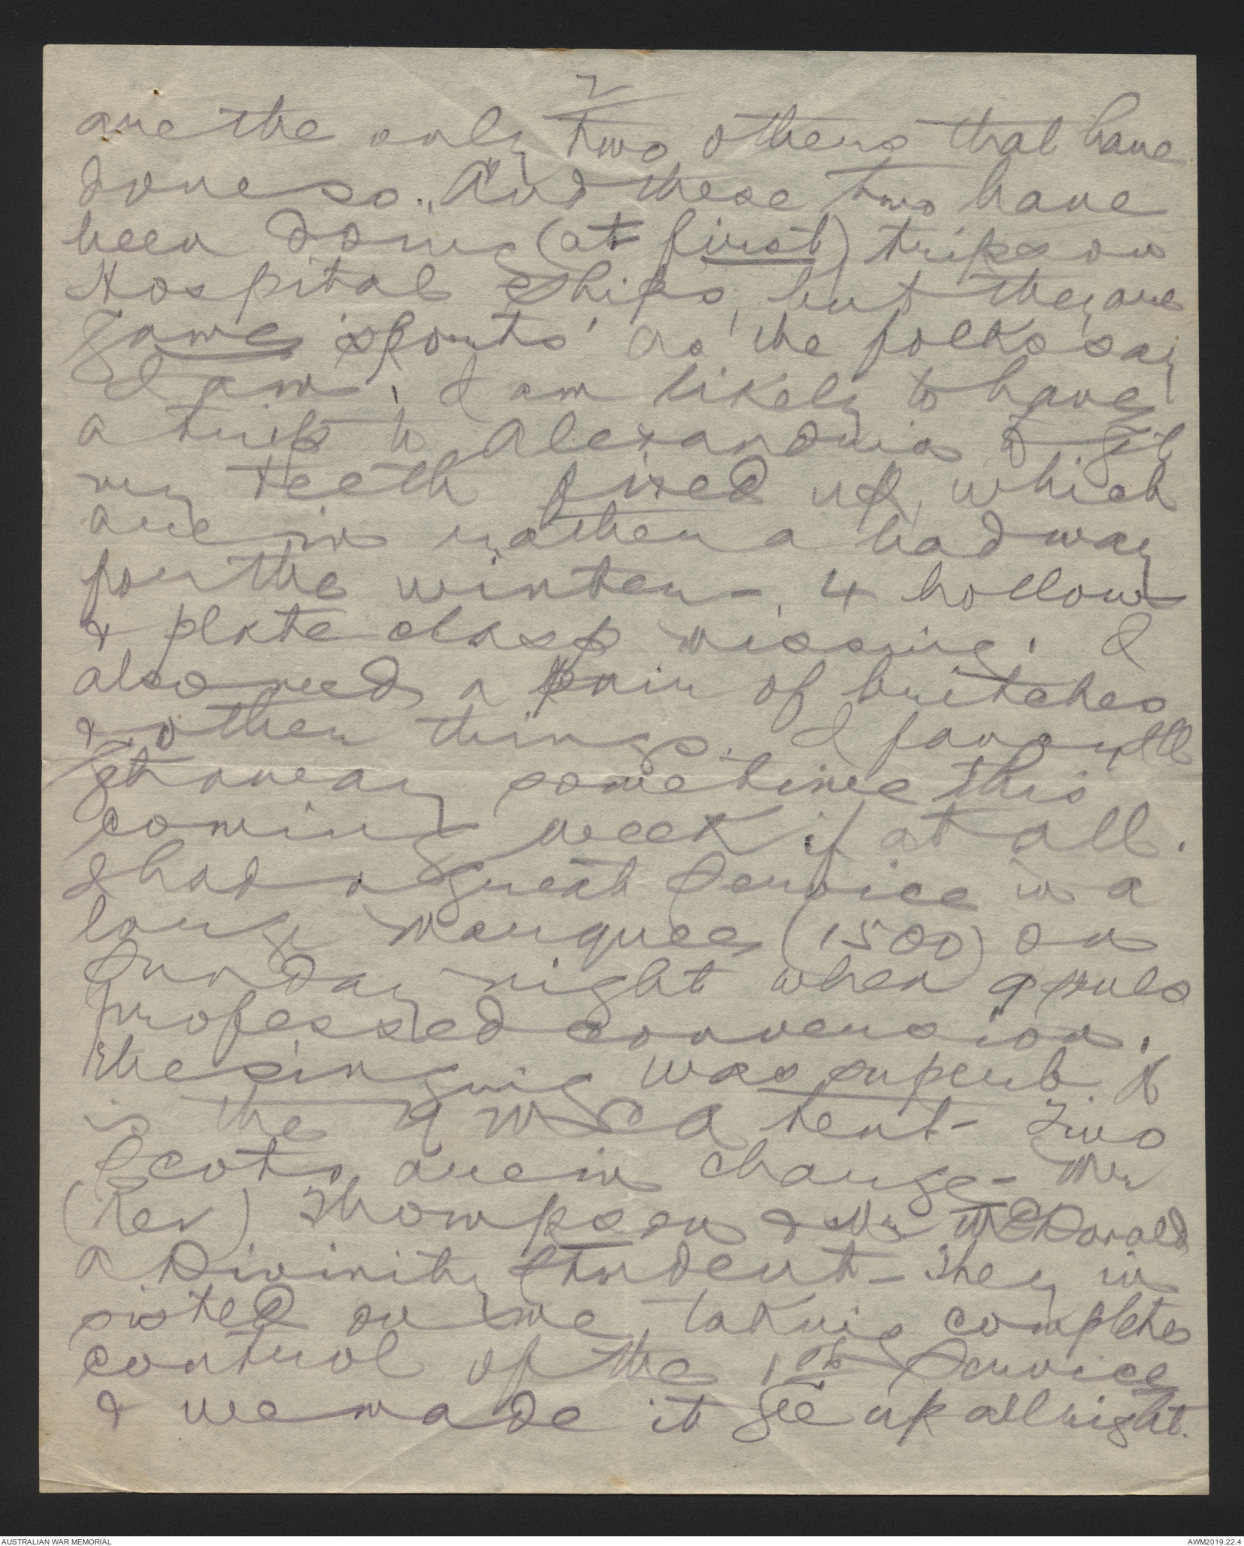 2
are the only two others that have
done so. And these two have
been doing (at first) trips on
Hospital Ships, but they are
game 'sports' as the folks say
I am. I am likely to have
a trip to Alexandria to get
my teeth fixed up, which
are in rather a bad way
for the winter -, 4 hollow
& plate clasp missing. I
also need a pair of britches
& other things. I fancy I'll
get away sometime this
coming week if at all.
I had a great Service in a
large marquee (1500) on
Sunday night when 9 souls
professed conversion.
The singing was superb. It
is the Y M C A tent - Two
Scots are in charge - Mr
(Rev) Thompson & Mr McDonald
a Divinity Student - They in
sisted on me taking complete
control of the 1st Service
& we made it gee up all right.
AUSTRALIAN WAR MEMORIAL
AWM2019.22.4